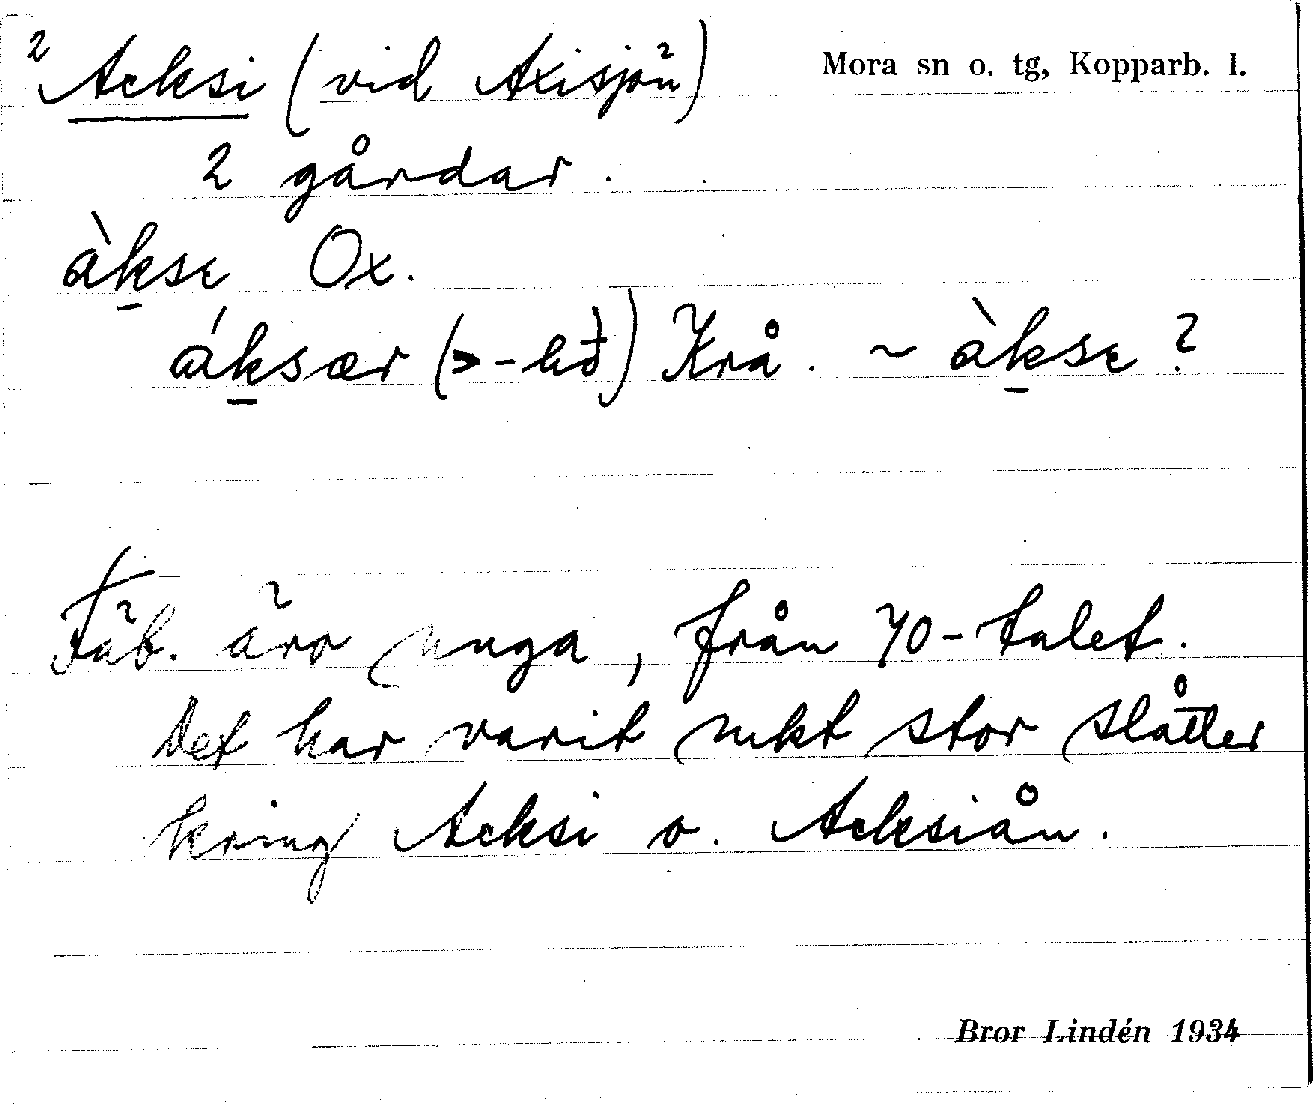 2 Acksi (vid Axisjön) Mora sn o. tg, Kopparb. l.
2 gårdar.
àkse Ox.
áksær (> - ) Krå. ~ àkse ?
Fäb. äro unga, från 70-talet.
Det har varit rikt stor slåtter
kring Acksi o. Acksiån.
Bror Lindén 1934